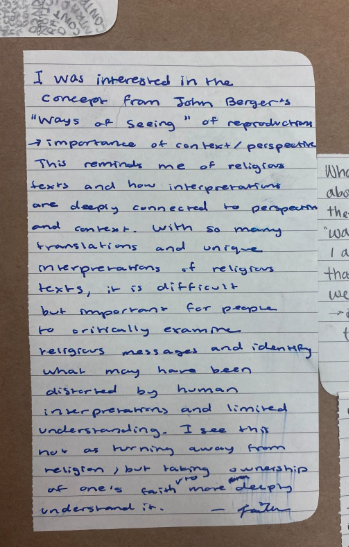 I was interested in the
concept from John Berger's
"Ways of Seeing" of reproductions
→ importance of context/perspective
This reminds me of religious
texts and how interpretations
are deeply connected to perspective
and context. With so many
translations and unique
interpretations of religious
texts, it is difficult
but important for people
to critically examine
religious messages and identify
what may have been
distorted by human
interpretations and limited
understanding. I see this
not as turning away from
religion, but taking ownership
of one's faith to more deeply
understand it. —
Wha
abo
the
"wa
I a
tha
we